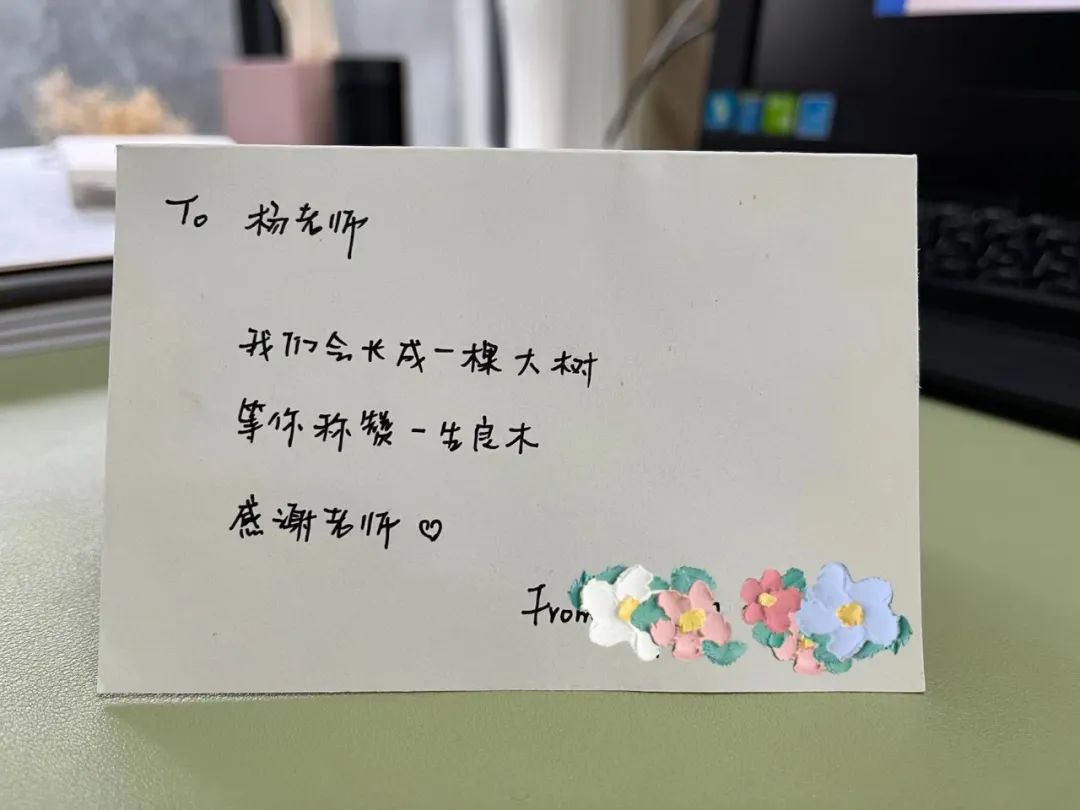 To 杨老师
我们会长成一棵大树
等你称赞一声良木
感谢老师♡
From